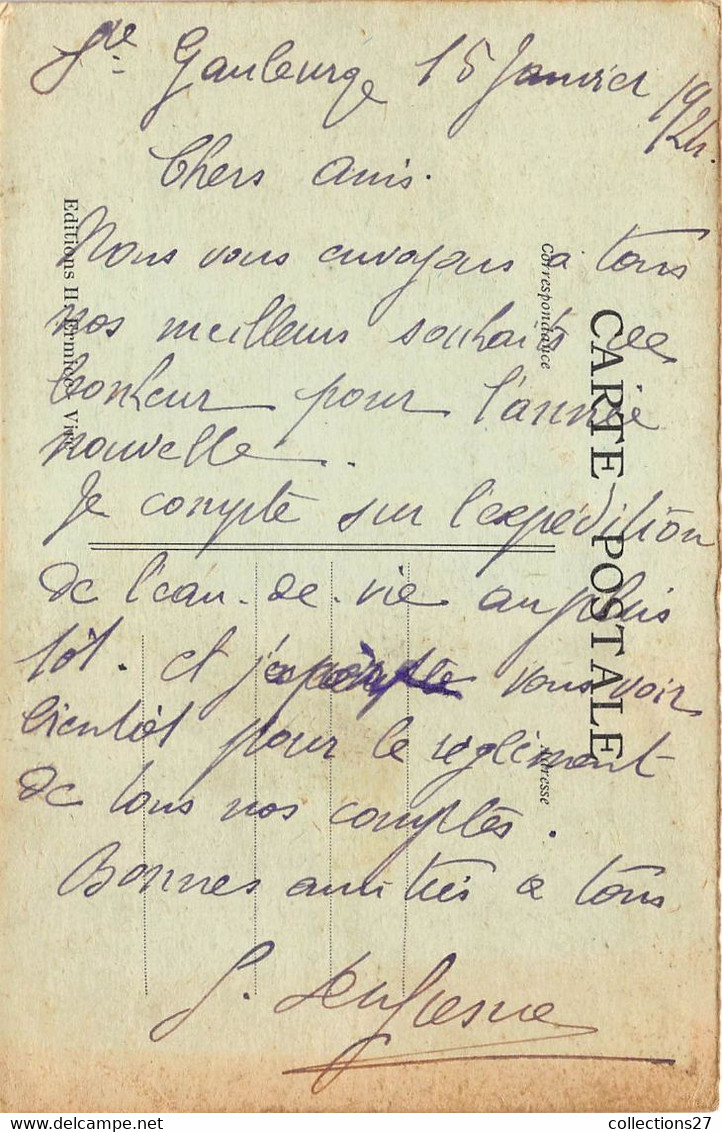 Ste Gauburge 15 Janvier
1924.
Chers amis.
Nous vous envoyons à tous
nos meilleurs souhaits de
bonheur pour l'année
nouvelle.
Je compte sur l'expédition
de l'eau-de-vie au plus
tôt. et vous voir
bientôt pour le réglement
de tous nos comptes.
Bonnes amitiés a tous
Editions H. Ermice Vire
Correspondance
CARTE POSTALE
Adresse
collections27